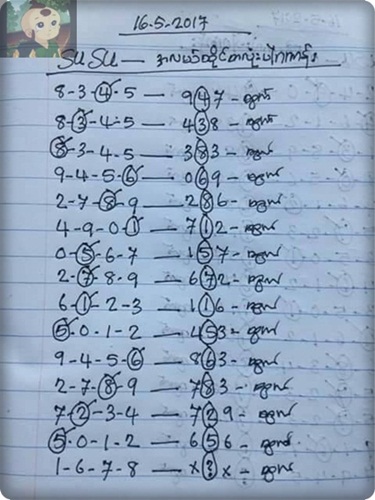 16.5.2017
SU SU — အလယ်ထိုင်တစ်လုံးပါဂဏန်း
8-3-4-5 — 947 - ထွက်
8-3-4-5 — 438 - ထွက်
8-3-4-5 — 383 - ထွက်
9-4-5-6 — 069 - ထွက်
2-7-8-9 — 286 - ထွက်
4-9-0-1 — 712 - ထွက်
0-5-6-7 — 157 - ထွက်
2-7-8-9 — 672 - ထွက်
6-1-2-3 — 116 - ထွက်
5-0-1-2 — 453 - ထွက်
9-4-5-6 — 863 - ထွက်
2-7-8-9 — 783 - ထွက်
7-2-3-4 — 729 - ထွက်
5-0-1-2 — 656 - ထွက်
1-6-7-8 — x?x - ထွက်